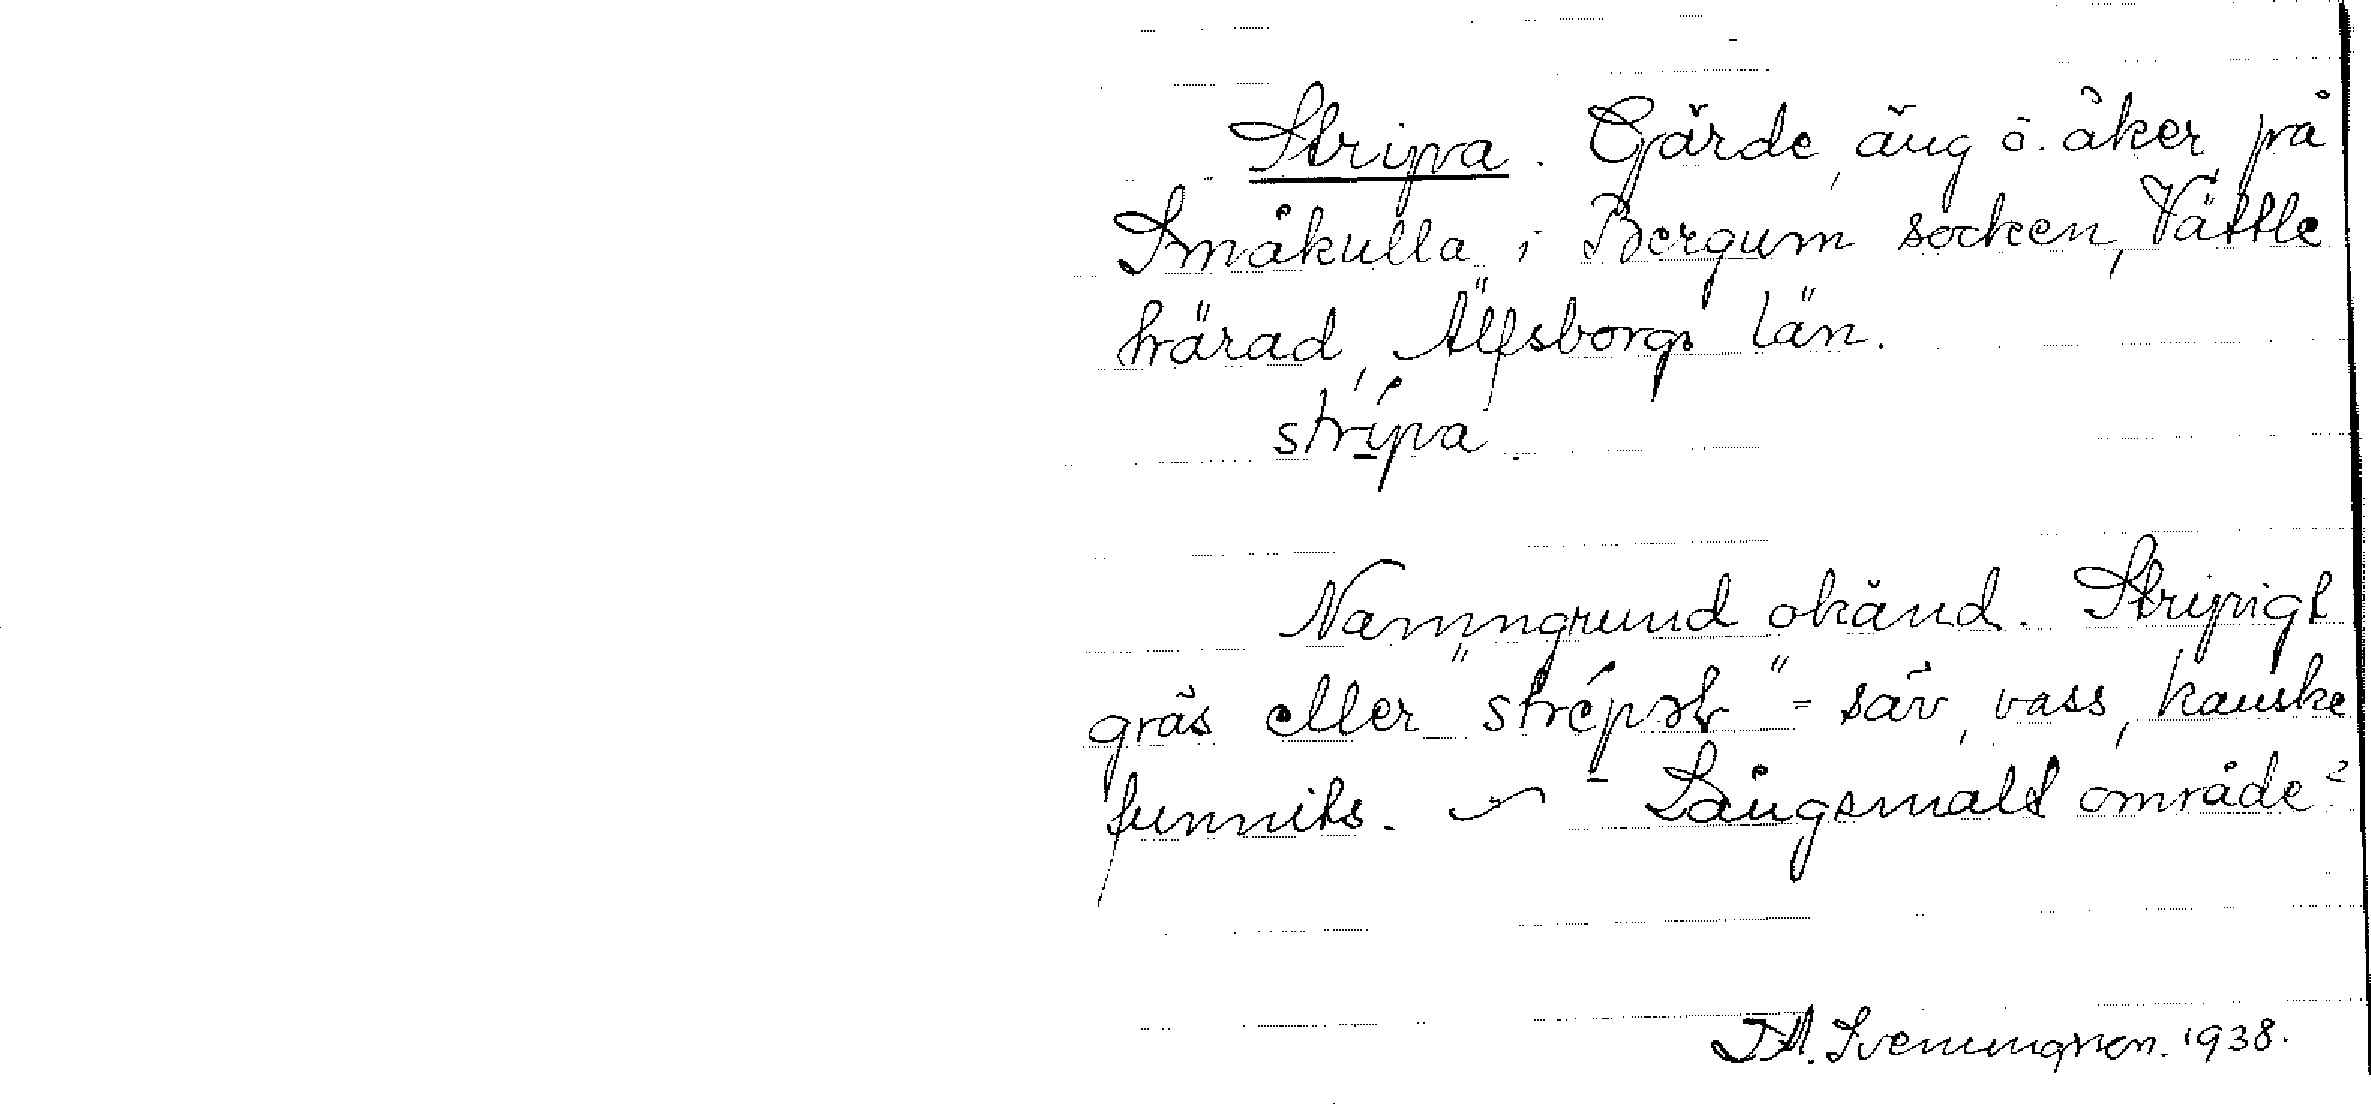 Stripa. Gärde, äng o. åker på
Småkulla i Bergum socken, Vättle
härad, Älfsborgs län.
strípa.
Namngrund okänd. Stripigt
gräs eller " " = säv, vass, kanske
funnits. Långsmalt område?
J.A. Svenungsson. 1938.